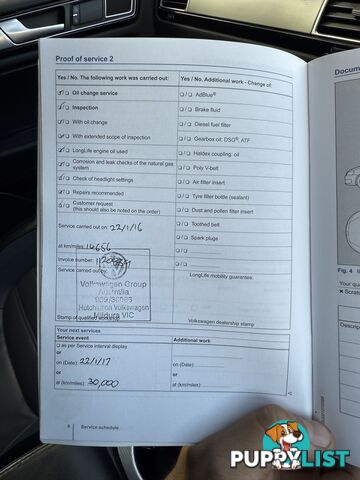 Proof of service 2
Yes / No. The following work was carried out:
Oil change service
Inspection
With oil change
With extended scope of inspection
LongLife engine oil used
Corrosion and leak checks of the natural gas
system
Check of headlight settings
Repairs recommended
Customer request
(this should also be noted on the order)
Service carried out on: 22/1/16
at km/miles: 14656
Invoice number:
Service carried out by:
Volkswagen Group
Australia
Hutchinson Volkswagen
Mildura VIC
Stamp of qualified workshop
Yes / No. Additional work - Change of:
AdBlue®
Brake fluid
Diesel fuel filter
Gearbox oil: DSG®, ATF
Haldex coupling: oil
Poly V-belt
Air filter insert
Tyre filler bottle (sealant)
Dust and pollen filter insert
Toothed belt
Spark plugs
LongLife mobility guarantee:
Volkswagen dealership stamp
Your next services
Service event
as per Service interval display
or
on (Date): 22/1/17
or
at (km/miles): 30,000
Additional work
on (Date):
or
at (km/miles):
Service schedule
Docum
Fig. 4
Your qua
Scratc
PUPPY LIST